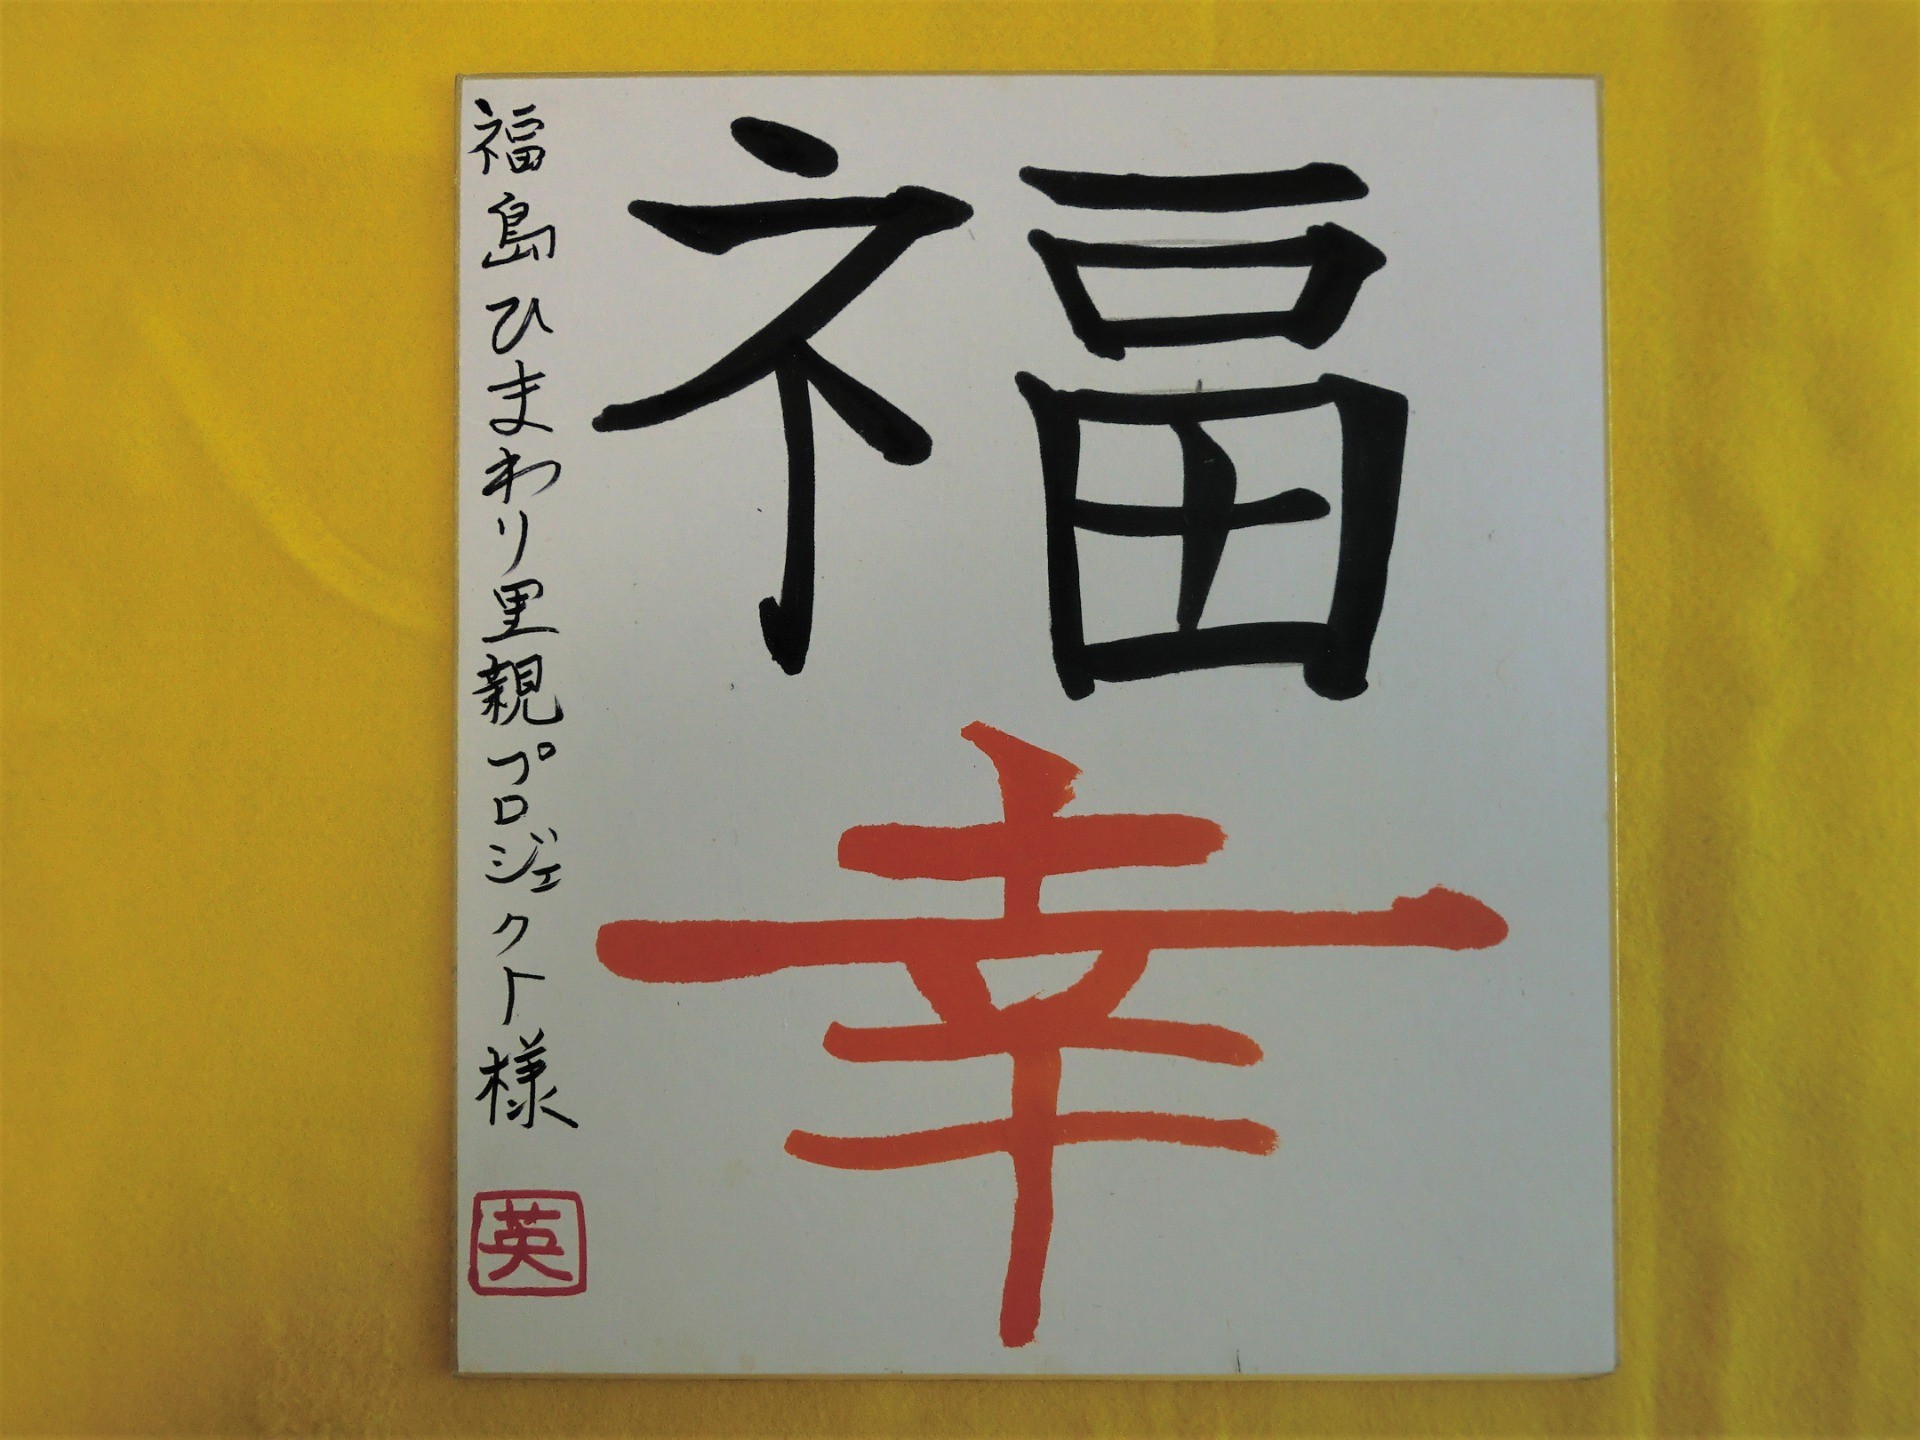 福
幸
福島ひまわり里親プロジェクト様
英